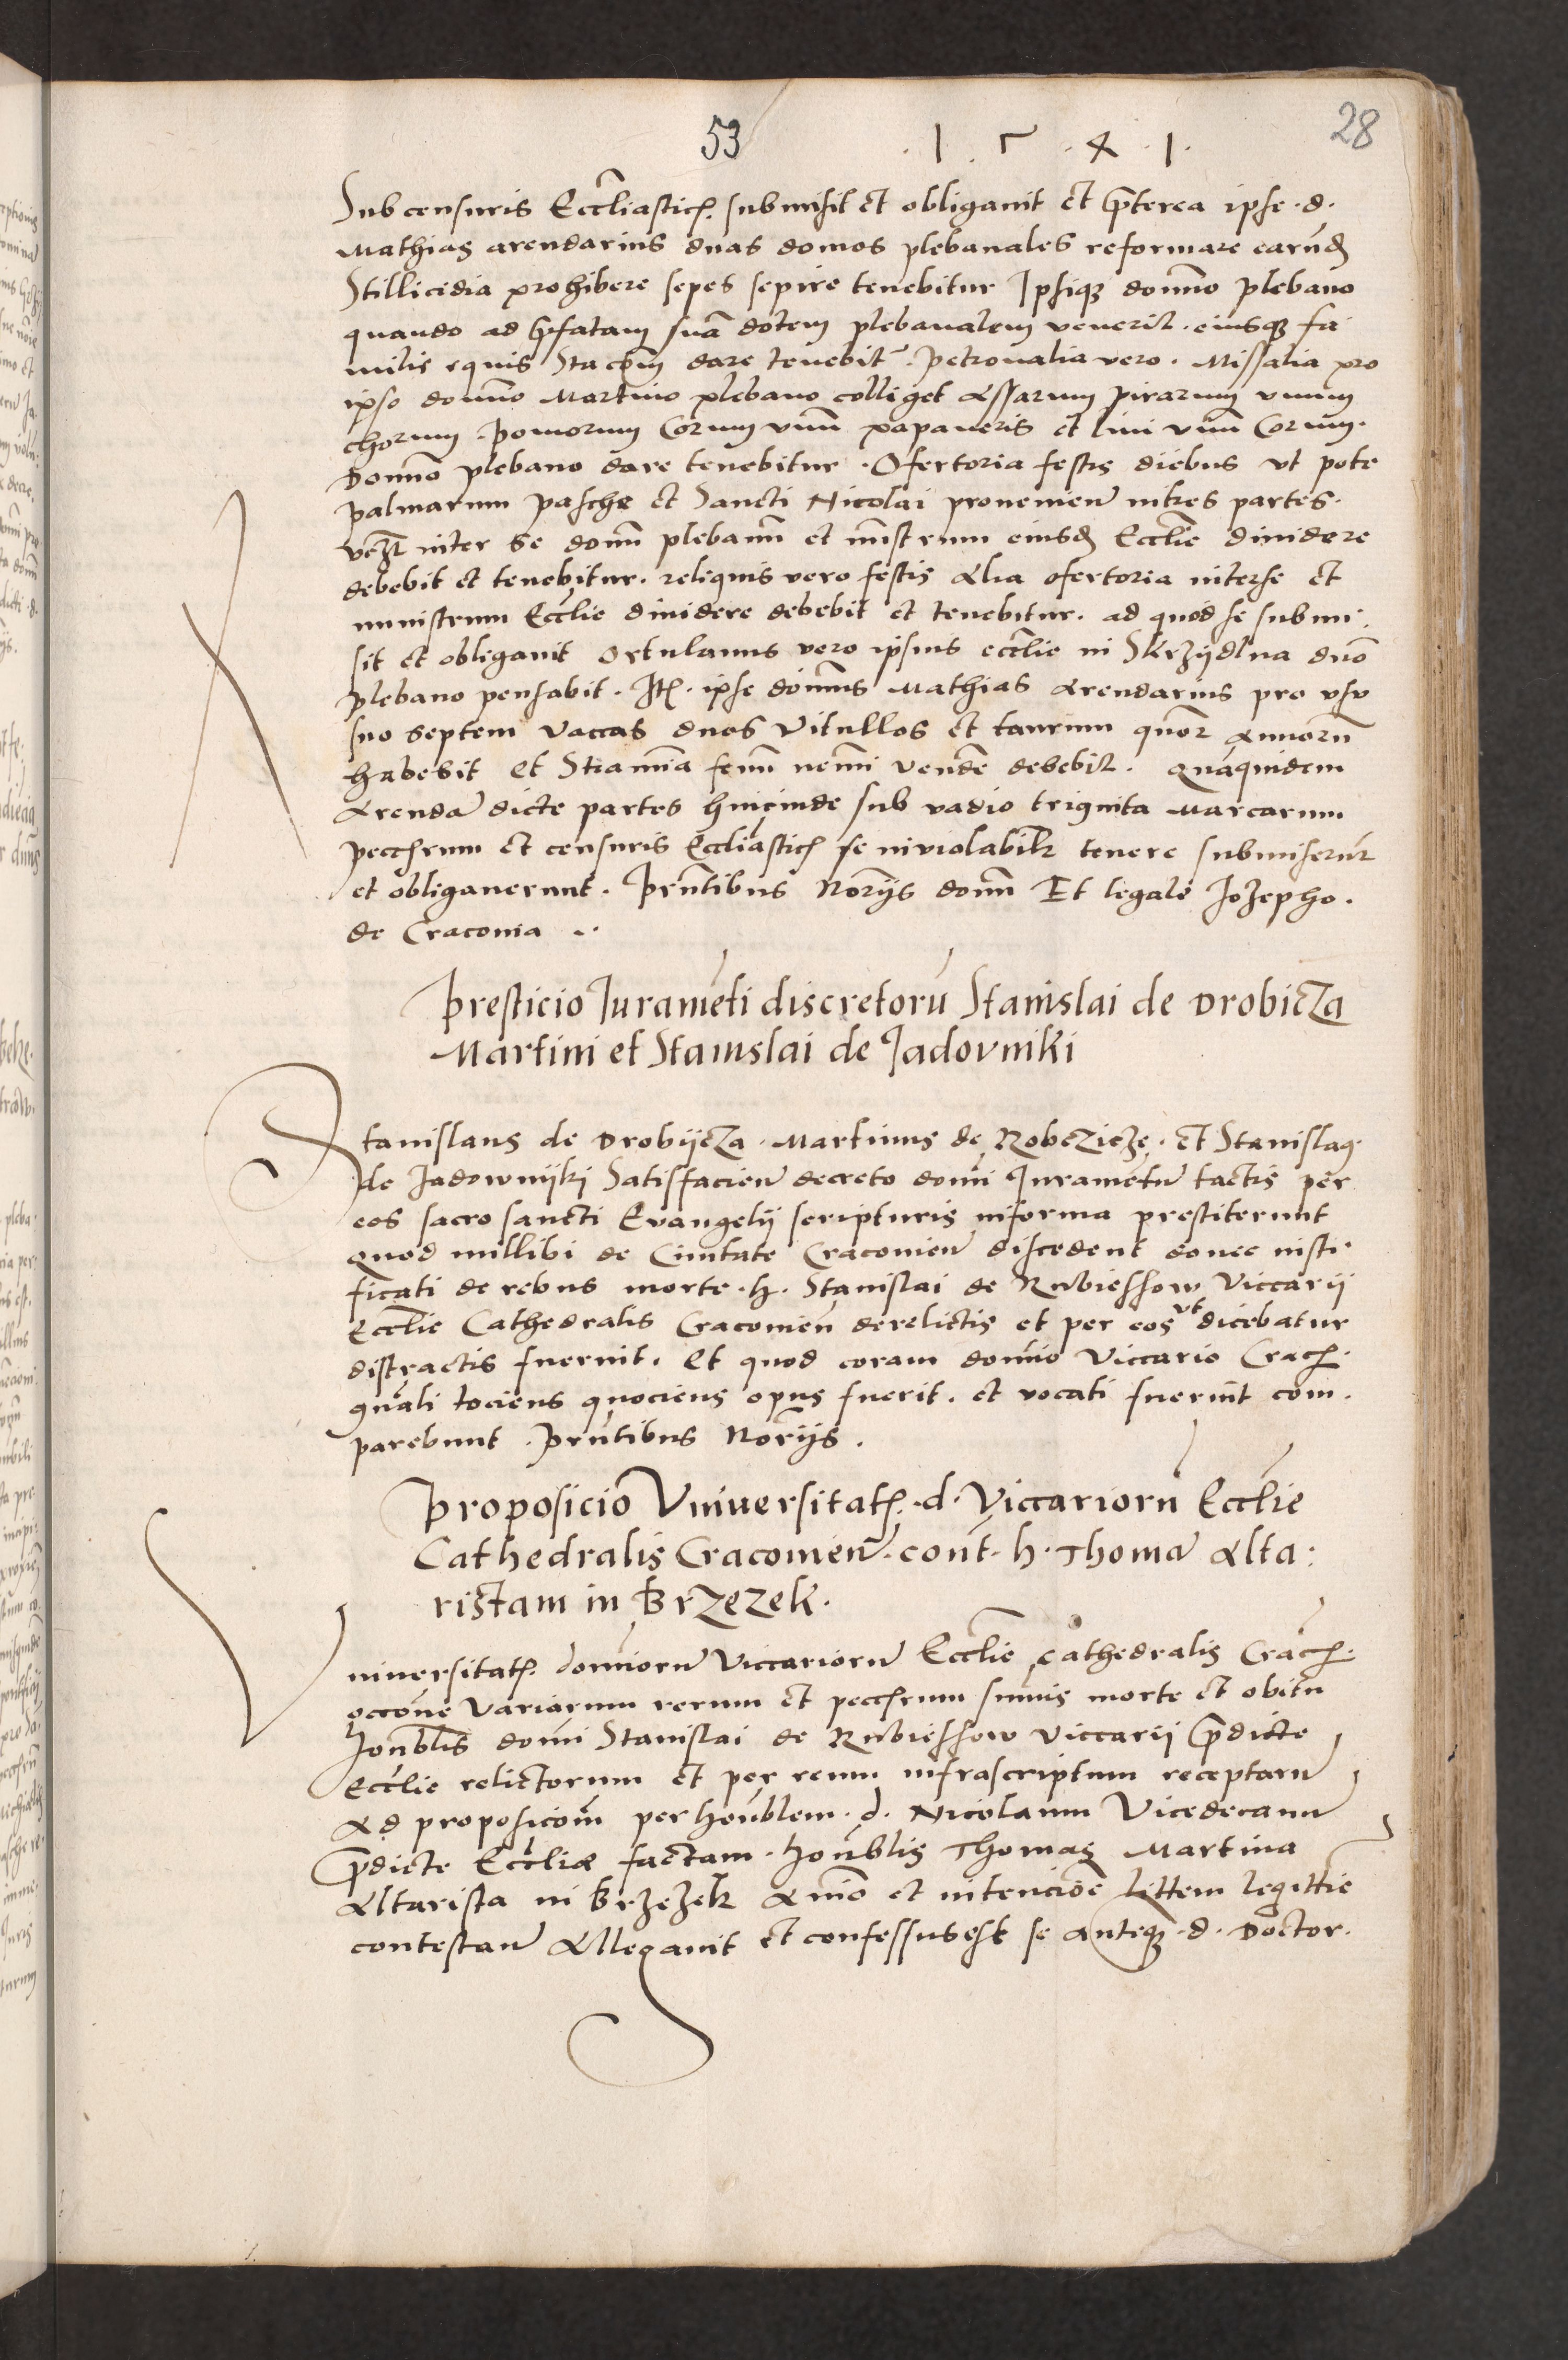 53 . 1 . 5 . 4 . 1 . 28
Sub censuris Eccliasticꝭ. submisit et obligauit et p̃terea ipse .d.
Mathias arendarius duas domos plebanales reformare earũdꝫ
Stillicidia prohibere sepes sepire tenebitur Ipsiqꝫ domno plebano
quando ad p̃fatam suã dotem plebanalem venerit. eiusqꝫ fa
milie equis dare tenebit᷑. Petronalia vero. Missalia pro
ipso domno Martino plebano colliget Assarum pirarum vnum
chorum. Pomorum Corum vnũ papaueris et lini vnũ Corum.
Domno plebano dare tenebitur. Ofertoria festis diebus vt pote
palmarum pasche et Sancti Nicolai prouenien̄ in tres partes.
inter se domũ plebanũ et mĩstrum eiusdꝫ Ecclie diuidere
debebit et tenebitur. reliquis vero festis Alia ofertoria inter se et
ministrum Ecclie diuidere debebit et tenebitur. ad quod se submi:
sit et obligauit Ortulanus vero ipsius ecclie in Skrzÿdlna dno
plebano pensabit. Itꝭ. ipse domnus Mathias Arendarius pro vsu
suo septem vaccas duos vitullos et taurum quor annorũ
habebit Et Stramĩa fenũ nemi vendẽ debebit. Quãquidem
Arendã dicte partes hincinde sub vadio triginta Marcarum
pecc̃rum et censuris Eccliasticꝭ se inviolabilr tenere submiserũt
et obligauerunt. Prñtibus Norÿs domĩ Et legalẽ Jozepho.
de Craconia ..
Presticio Juramẽti discretorũ Stanislai de Drobicza
Martini et Stanislai de Jadovniki
Stanislaus de Drobÿcza. Martinus de Robczicze. et Stanislaꝯ
de Jadownÿki Satisfacien̄ decreto domĩ Juramẽtũ tactis per
eos sacro sancti Evangelÿ scripturis in forma prestiterunt
quod nullibi de Ciuitate Craconien̄ discedent donec iusti
ficati de rebus morte .h. Stanislai de Rubieschow Viccarÿ
Ecclie Cathedralis Craconien̄ derelictis et per eos vt dicebatur
distractis fuerint. Et quod coram domino Viccario Cracꝭ.
gñali tociens quociens opus fuerit. et vocati fuerint com
parebunt. Prñtibus Norÿs.
Proposicio Vniuersitatꝭ. d. Viccariorũ Ecclie
Cathedralis Craconien̄. cont̃. h. Thomã Alta:
ristam in Brzezek.
Vniuersitatꝭ. dominorũ Viccariorũ Ecclie Cathedralis Cracꝭ.
occõne variarum rerum et pecc̃rum sumis morte et obitu
honblis domĩ Stanislai de Rubieschow Viccarÿ p̃dicte
Ecclie relictorum et per reum infrascriptum receptarũ
Ad proposicõm per honblem. d. Nicolaum Vicedecanũ
p̃dicte Eccliæ factam. honblis Thomas Martina
Altarista in Brzezek Animo et intencione littem legittie
contestan̄ Allegauit et confessus est se antiqꝫ. d. Doctor.